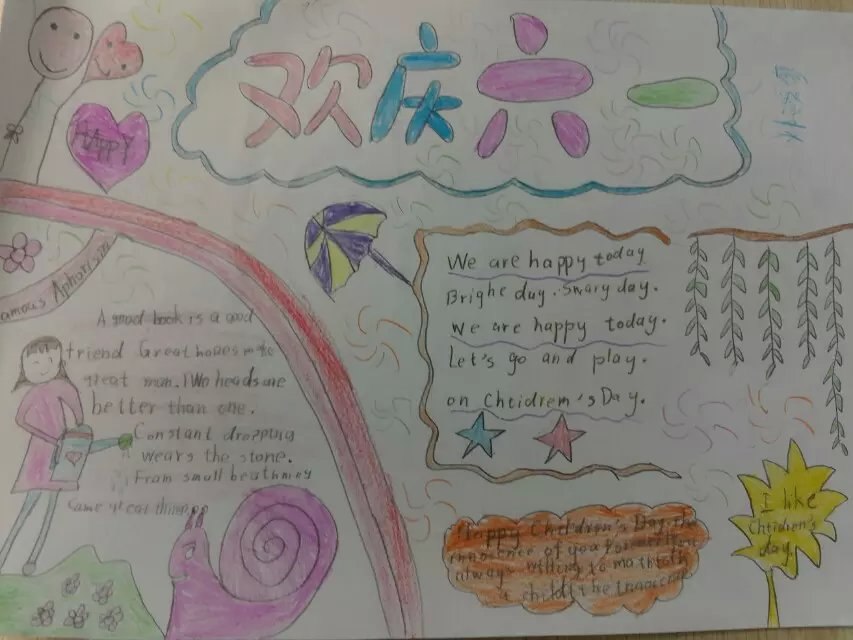 欢庆六一
HAPPY
amous Aphorism
A good book is a good
friend Great hopes make
great man. Two heads are
better than one.
Constant dropping
wears the stone.
From small beginning
Came great things
We are happy today
Brighe day. Swary day.
We are happy today.
Let's go and play.
on Chtidrem's Day.
Happy Children's Day, the
innocence of you forever
always willing to
a child, the innocent
I like
Chtidren's
day